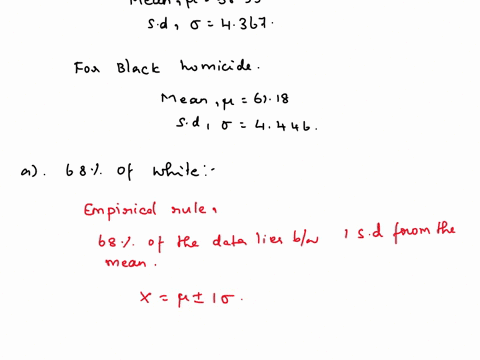 Mean, μ =
s.d, σ = 4.367.
For Black homicide.
Mean, μ = 61.18
s.d, σ = 4.446.
a). 68% of white:-
Empirical rule,
68% of the data lies b/w 1 s.d from the
mean.
X = μ ± 1σ.